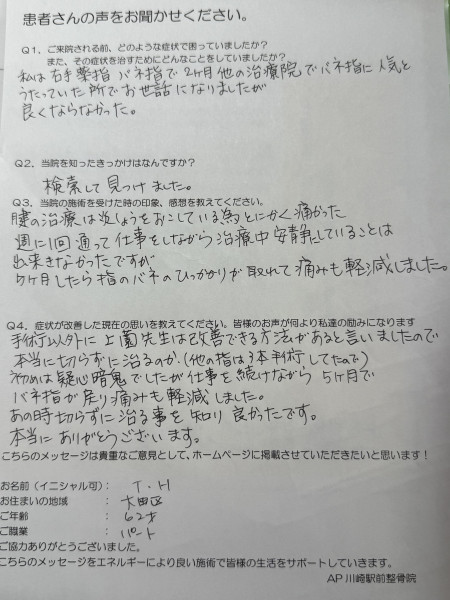 患者さんの声をお聞かせください。
Q1、ご来院される前、どのような症状で困っていましたか？
また、その症状を治すためにどんなことをしていましたか？
私は右手薬指バネ指で2ヶ月他の治療院でバネ指に人気と
うたっていた所でお世話になりましたが
良くならなかった。
Q2、当院を知ったきっかけはなんですか？
検索して見つけました。
Q3、当院の施術を受けた時の印象、感想を教えてください。
腱の治療は炎しょうをおこしている為とにかく痛かった
週に1回通って仕事をしながら治療中安静にしていることは
出来きなかったですが
5ヶ月したら指のバネのひっかかりが取れて痛みも軽減しました。
Q4、症状が改善した現在の思いを教えてください。皆様のお声が何より私達の励みになります
手術以外に上薗先生は改善できる方法があると言いましたので
本当に切らずに治るのか、(他の指は3本手術してたので)
初めは疑心暗鬼でしたが仕事を続けながら5ヶ月で
バネ指が戻り痛みも軽減しました。
あの時切らずに治る事を知り良かったです。
本当にありがとうございます。
こちらのメッセージは貴重なご意見として、ホームページに掲載させていただきたいと思います！
お名前（イニシャル可）： T.H
お住まいの地域 ： 大田区
ご年齢 ： 62才
ご職業 ： パート
ご協力ありがとうございました。
こちらのメッセージをエネルギーにより良い施術で皆様の生活をサポートしていきます。
AP 川崎駅前整骨院